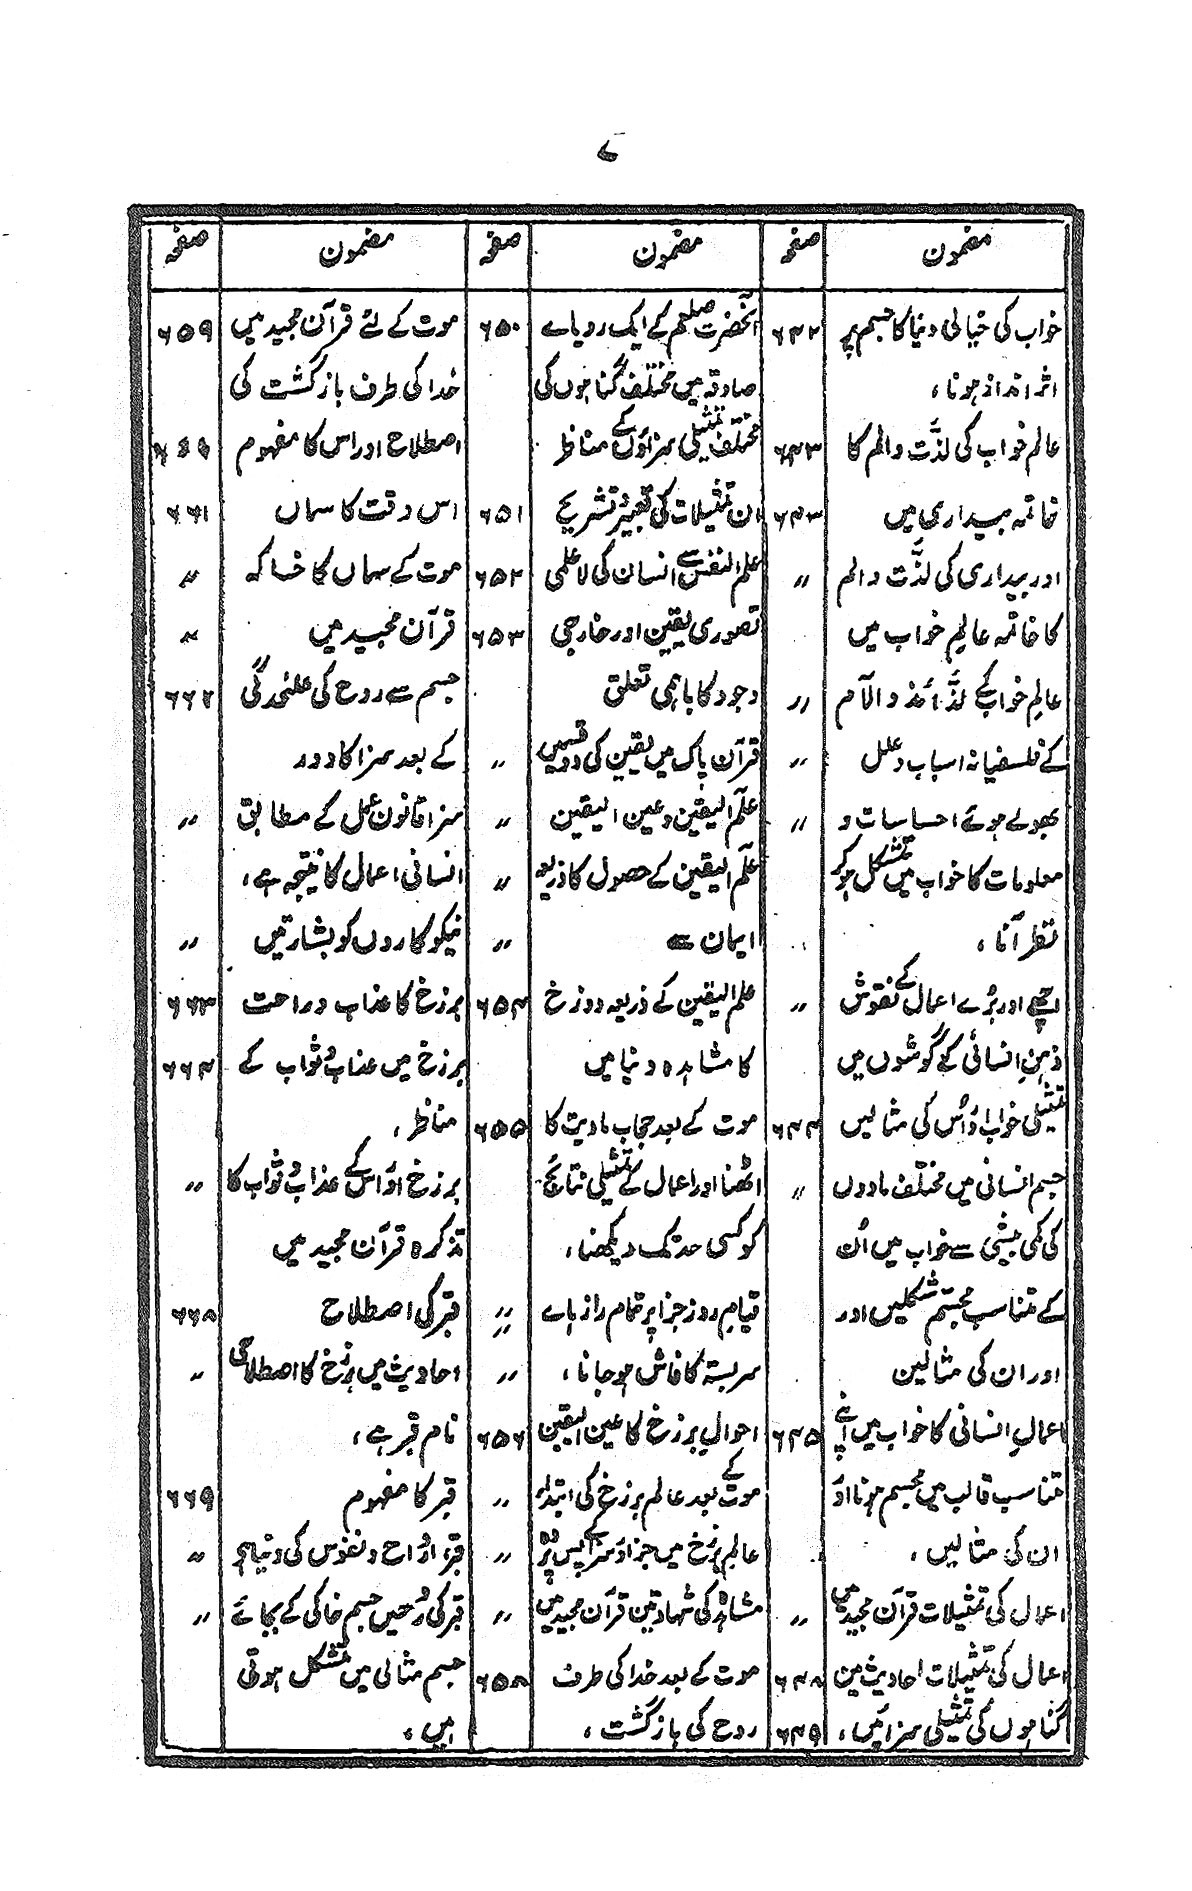 ۷
مضمون صفحہ
خواب کی خیالی دنیا کا جسم پر ۶۴۲
اثر انداز ہونا،
عالم خواب کی لذّت و الم کا ۶۴۳
خاتمہ بیداری میں ۶۴۳
اور بیداری کی لذّت و الم 〃
کا خاتمہ عالمِ خواب میں
عالمِ خواب کے لذّائذ و آلام 〃
کے فلسفیانہ اسباب و علل 〃
بھولے ہوئے احساسات و 〃
معلومات کا خواب میں متشکل ہو کر
نظر آنا،
اچھے اور بُرے اعمال کے نقوش 〃
ذہنِ انسانی کے گوشوں میں
تمثیلی خواب اور اُس کی مثالیں ۶۴۴
جسم انسانی میں مختلف مادوں 〃
کی کمی بیشی سے خواب میں اُن
کے متناسب مجسّم شکلیں اور
اور ان کی مثالین
اعمالِ انسانی کا خواب میں اپنے ۶۴۵
متناسب قالب میں مجسم ہونا اور
ان کی مثالیں،
اعمال کی تمثیلات قرآن مجید میں 〃
اعمال کی تمثیلات احادیث مین ۶۴۸
گناہوں کی تمثیلی سزائیں، ۶۴۹
مضمون صفحہ
آنحضرت صلعم کے ایک رویاے ۶۵۰
صادقہ میں مختلف گناہوں کی
مختلف تمثیلی سزاؤں کے مناظر
ان تمثیلات کی تعبیر و تشریح ۶۵۱
علم النفس سے انسان کی لاعلمی ۶۵۲
تصوری یقین اور خارجی ۶۵۳
وجود کا باہمی تعلق
قرآن پاک میں یقین کی دو قسمیں 〃
علم الیقین و عین الیقین 〃
علم الیقین کے حصول کا ذریعہ 〃
ایمان ہے 〃
علم الیقین کے ذریعہ دوزخ ۶۵۴
کا مشاہدہ دنیا میں
موت کے بعد حجاب مادیت کا ۶۵۵
اٹھنا اور اعمال کے تمثیلی نتائج
کو کسی حد تک دیکھنا،
قیامِ روز جزا پر تمام راز ہاے 〃
سربستہ کا فاش ہو جانا، 〃
احوالِ برزخ کا عین الیقین ۶۵۶
موت کے بعد عالم برزخ کی ابتدا 〃
عالمِ برزخ میں جزا و سزا کے پس پردہ 〃
مشاہدہ کی شہادتین قرآن مجید میں 〃
موت کے بعد خدا کی طرف ۶۵۸
روح کی بازگشت،
مضمون صفحہ
موت کے لئے قرآن مجید میں ۶۵۹
خدا کی طرف بازگشت کی
اصطلاح اور اس کا مفہوم
اس وقت کا سماں ۶۶۱
موت کے سماں کا خاکہ 〃
قرآن مجید میں 〃
جسم سے روح کی علٰحدگی ۶۶۲
کے بعد سزا کا دور
سزا قانون عمل کے مطابق 〃
انسانی اعمال کا نتیجہ ہے،
نیکوکاروں کو بشارتیں 〃
برزخ کا عذاب و راحت ۶۶۳
برزخ میں عذاب و ثواب کے ۶۶۴
مناظر،
برزخ اور اس کے عذاب و ثواب کا 〃
تذکرہ قرآن مجید میں
قبر کی اصطلاح ۶۶۸
احادیث میں برزخ کا اصطلاحی 〃
نام قبر ہے،
قبر کا مفہوم ۶۶۹
قبر، ارواح و نفوس کی دنیا ہے 〃
قبر کی رُحیں جسم خاکی کے بجائے 〃
جسم مثالی میں متشکل ہوتی
ہیں،